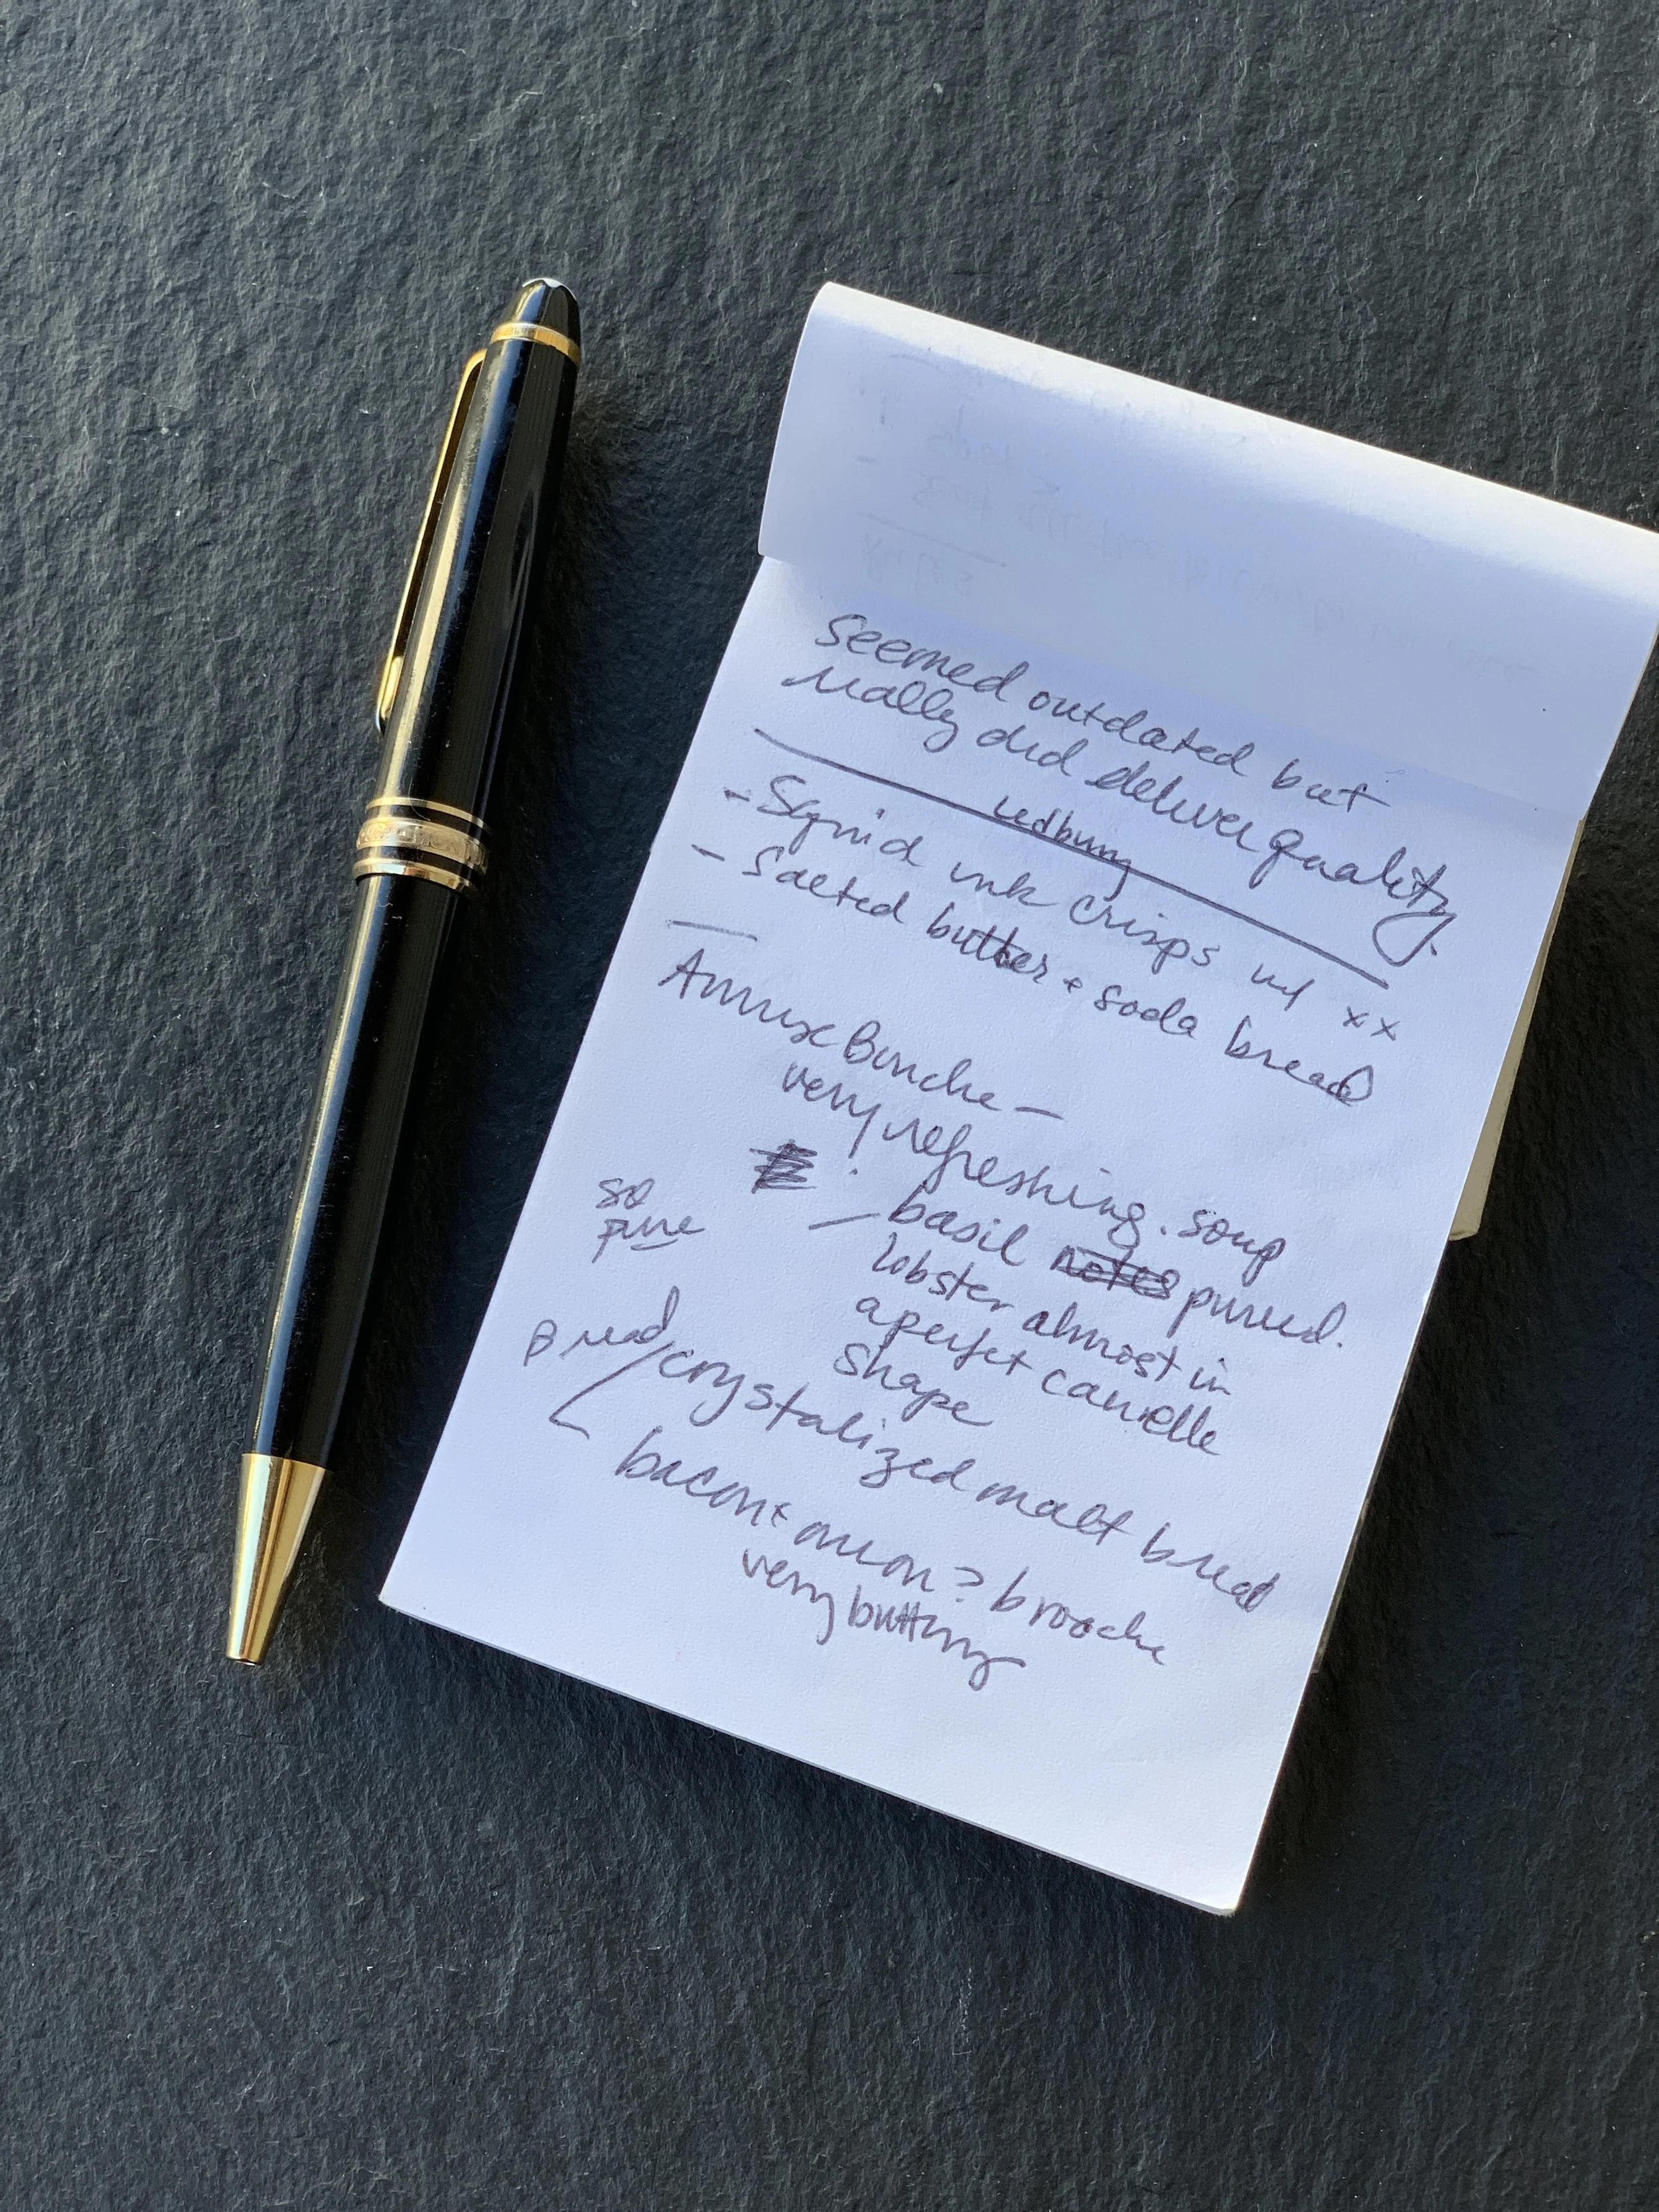 seemed outdated but
really did deliver quality.
Ledbury
- Squid ink crisps w/ xx
- Salted butter + soda bread
Amuse Bouche —
very refreshing. soup
— basil notes pureed.
lobster almost in
a perfect canelle
shape
so
pure
Bread/crystalized malt bread
bacon + onion? brioche
very buttery